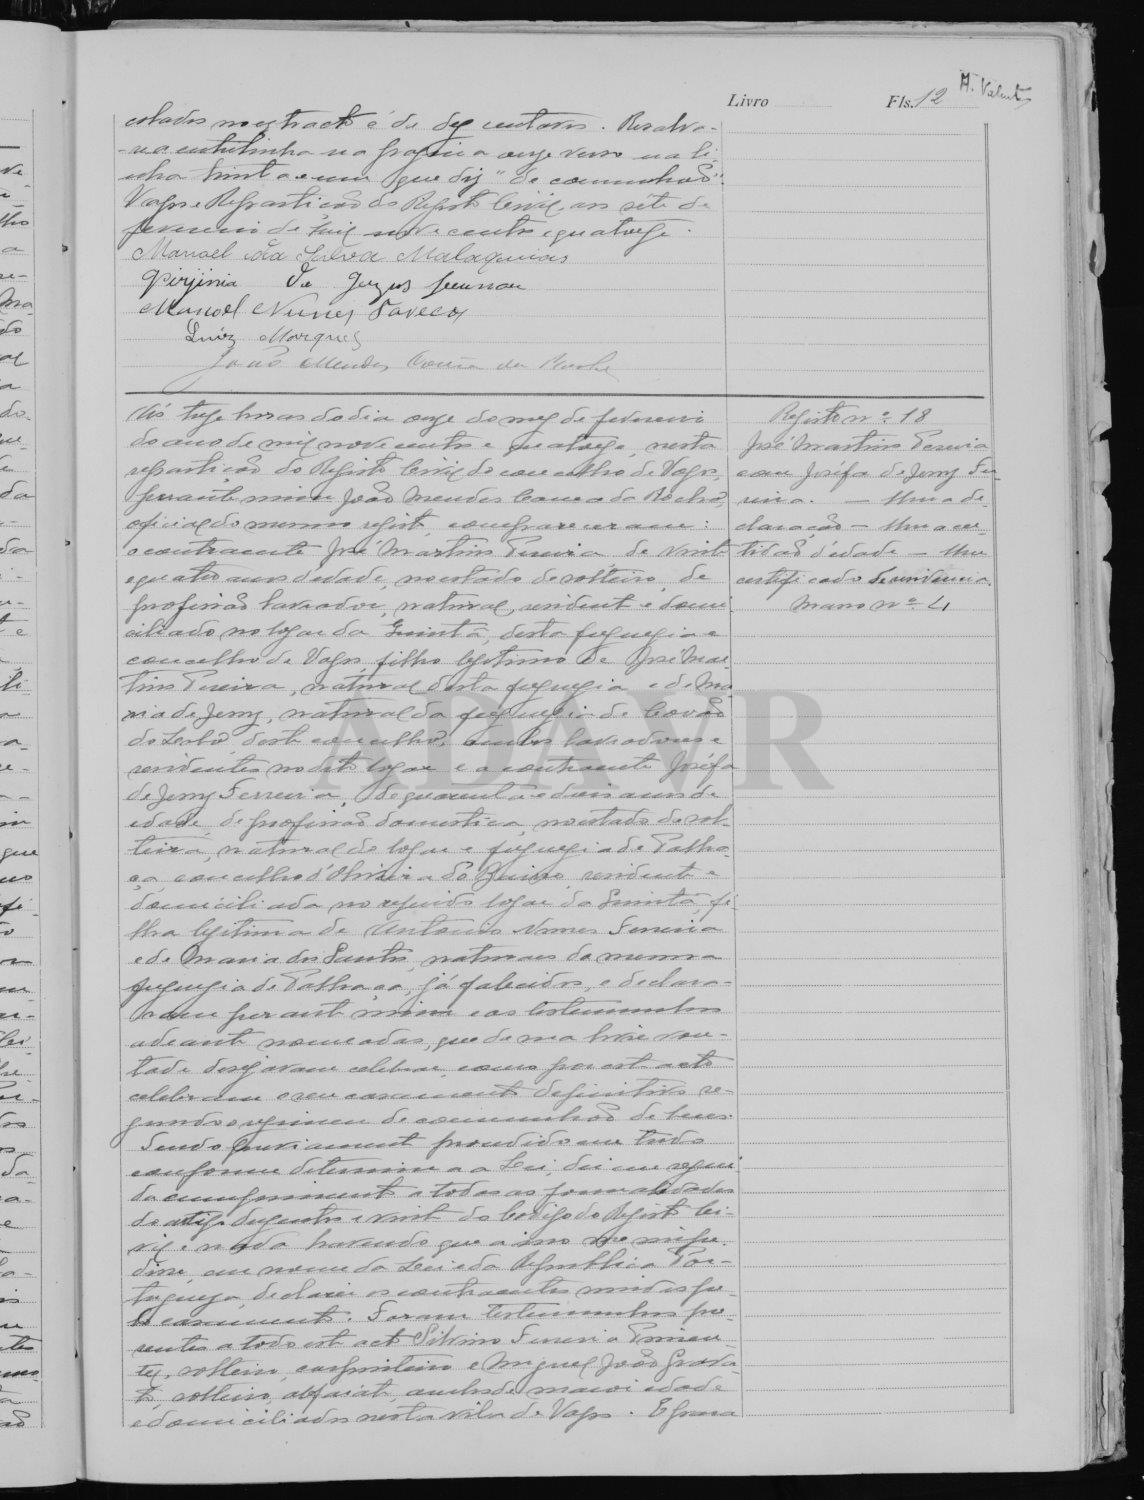 Livro Fls. 12 A. Valente
colados no extracto é de dez centavos. Resalva-
-se a entrelinha na pagina onze verso na li-
nha trinta e um que diz "de comunhão".
Vagos e Repartição do Registo Civil, aos sete de
fevereiro de mil nove centos e quatorze.
Manoel da Silva Malaquias
Virjinia de Jezus
Manoel Nunes
Luiz Marques
João Mendes Correia da Rocha
Ás treze horas do dia onze do mez de fevereiro
do ano de mil nove centos e quatorze, nesta
repartição do Registo Civil do concelho de Vagos,
perante mim João Mendes Correia da Rocha,
oficial do mesmo registo, compareceram:
o contraente José Martins Pereira, de vinte
e quatro anos d'edade, no estado de solteiro, de
profissão lavrador, natural, residente e domi-
ciliado no logar da Quintã, desta freguezia e
concelho de Vagos, filho legitimo de José Mar-
tins Pereira, natural desta freguezia e de Ma-
ria de Jesus, natural da freguezia de Covão
do Lobo, deste concelho, ambos lavradores e
residentes no dito logar e a contraente Joséfa
de Jesus Ferreira, de quarenta e dois anos de
edade, de profissão domestica, no estado de sol-
teira, natural do logar e freguezia de Palha-
ça, concelho d'Oliveira do Bairro, residente e
domiciliada no referido logar da Quintã, fi-
lha legitima de Antonio Nunes Ferreira
e de Maria dos Santos, naturaes da mesma
freguezia de Palhaça, já falecidos, e declara-
ram perante mim e as testemunhas
adeante nomeadas, que de sua livre von-
tade desejavam celebrar, como por este acto
celebram o seu casamento definitivo se-
gundo o regimen de comunhão de bens.
Tendo previamente procedido em tudo
conforme determina a Lei, dei em segui-
da cumprimento a todas as formalidades
do artigo duzentos e vinte do Codigo do Registo Ci-
vil e nada havendo que a isso me impe-
disse, em nome da Lei e da Republica Por-
tugueza, declarei os contraentes unidos pe-
lo casamento. Foram testemunhas pre-
sentes a todo este acto Silvino Ferreira Pimen-
tel, solteiro, carpinteiro e Miguel João Grava-
to, solteiro, alfaiate, ambos de maior idade
e domiciliados nesta vila de Vagos. E para
Registo nº 18
José Martins Pereira
com Joséfa de Jesus Fer-
reira. — Uma de-
claração — Uma cer-
tidão d'edade — Um
certificado de residencia
Maço nº 4
ADAVR